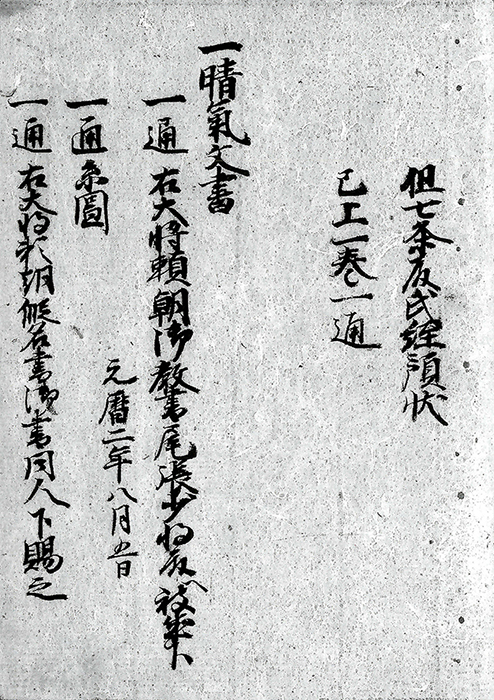 但七条殿氏経預状
已上一巻一通
一晴氣文書
一通 右大将頼朝御教書尾張少将殿へ被進
元暦二年八月五日
一通 系圖
一通 右大将頼朝仮名書御書同人下賜之